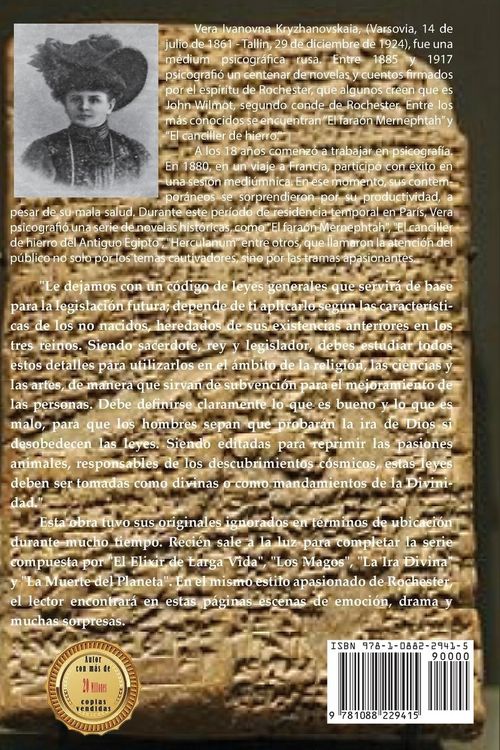 Vera Ivanovna Kryzhanovskaia, (Varsovia, 14 de
julio de 1861 - Tallin, 29 de diciembre de 1924), fue una
médium psicográfica rusa. Entre 1885 y 1917
psicografió un centenar de novelas y cuentos firmados
por el espíritu de Rochester, que algunos creen que es
John Wilmot, segundo conde de Rochester. Entre los
más conocidos se encuentran "El faraón Mernephtah" y
"El canciller de hierro."
A los 18 años comenzó a trabajar en psicografía.
En 1880, en un viaje a Francia, participó con éxito en
una sesión mediúmnica. En ese momento, sus contem-
poráneos se sorprendieron por su productividad, a
pesar de su mala salud. Durante este período de residencia temporal en París, Vera
psicografió una serie de novelas históricas, como "El faraón Mernephtah", "El canciller
de hierro del Antiguo Egipto", "Herculanum" entre otros, que llamaron la atención del
público no solo por los temas cautivadores, sino por las tramas apasionantes.
"Le dejamos con un código de leyes generales que servirá de base
para la legislación futura; depende de ti aplicarlo según las característi-
cas de los no nacidos, heredados de sus existencias anteriores en los
tres reinos. Siendo sacerdote, rey y legislador, debes estudiar todos
estos detalles para utilizarlos en el ámbito de la religión, las ciencias y
las artes, de manera que sirvan de subvención para el mejoramiento de
las personas. Debe definirse claramente lo que es bueno y lo que es
malo, para que los hombres sepan que probarán la ira de Dios si
desobedecen las leyes. Siendo editadas para reprimir las pasiones
animales, responsables de los descubrimientos cósmicos, estas leyes
deben ser tomadas como divinas o como mandamientos de la Divini-
dad."
Esta obra tuvo sus originales ignorados en términos de ubicación
durante mucho tiempo. Recién sale a la luz para completar la serie
compuesta por "El Elixir de Larga Vida", "Los Magos", "La Ira Divina"
y "La Muerte del Planeta". En el mismo estilo apasionado de Rochester,
el lector encontrará en estas páginas escenas de emoción, drama y
muchas sorpresas.
Autor
con más de
20 Millones
copias
vendidas
ISBN 978-1-0882-2941-5
90000
9 781088 229415